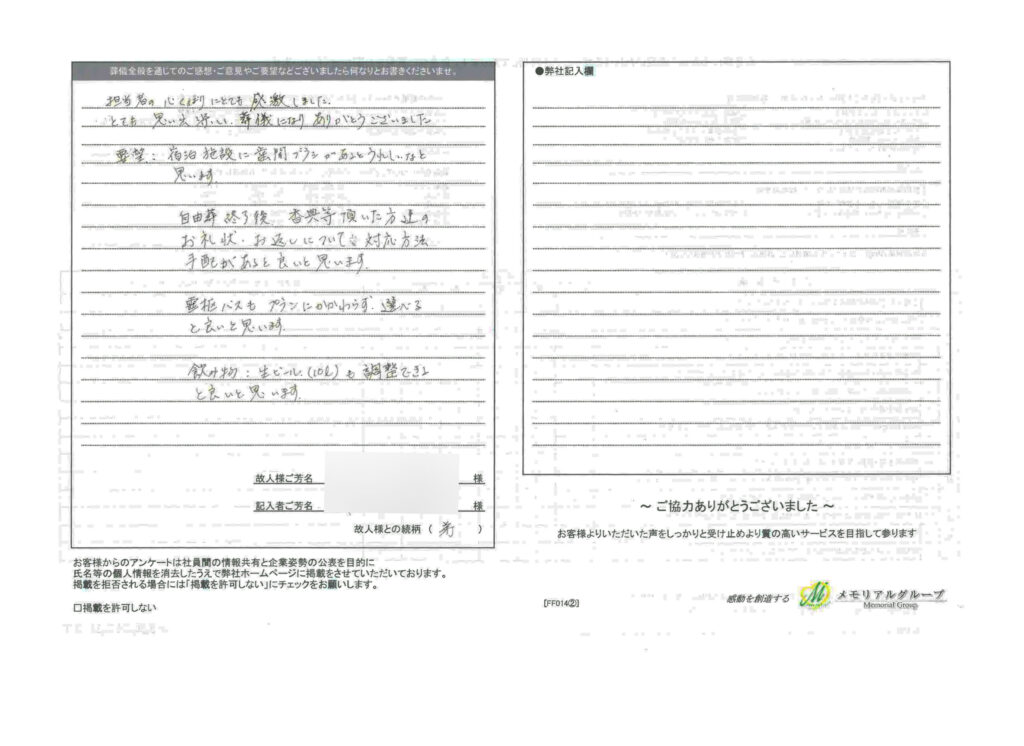 葬儀全般を通じてのご感想・ご意見やご要望などございましたら何なりとお書きくださいませ。
担当者の心くばりにとても感激しました。
とても思い出深い、葬儀になりありがとうございました
要望：宿泊施設に歯間ブラシがあるとうれしいなと
思います
自由葬終了後 香典等頂いた方達の
お礼状・お返しについて 対応方法
手配があると良いと思います。
霊柩バスもプランにかかわらず、選べる
と良いと思います。
飲み物：生ビール（10ℓ）も調整できる
と良いと思います。
故人様ご芳名 様
記入者ご芳名 様
故人様との続柄（ ）
お客様からのアンケートは社員間の情報共有と企業姿勢の公表を目的に
氏名等の個人情報を消去したうえで弊社ホームページに掲載をさせていただいております。
掲載を拒否される場合には「掲載を許可しない」にチェックをお願いします。
□掲載を許可しない
●弊社記入欄
～ ご協力ありがとうございました ～
お客様よりいただいた声をしっかりと受け止めより質の高いサービスを目指して参ります
[FF014②]
感動を創造する
メモリアルグループ
Memorial Group